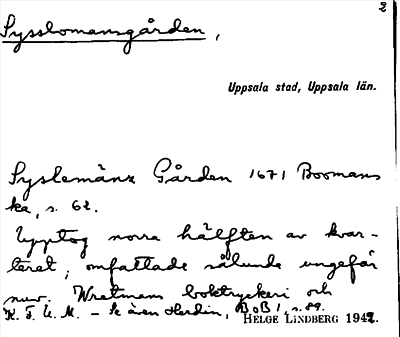 2
Sysslomansgården,
Uppsala stad, Uppsala län.
Syslemänz Gården 1671 Boomans
ka, s. 62.
Upptog norra hälften av kvar-
teret; omfattade sålunda ungefär
nuv. Wretmans boktryckeri och
K. F. U. M. – Se även Herdin, BoB 1, s. 89.
HELGE LINDBERG 1942.